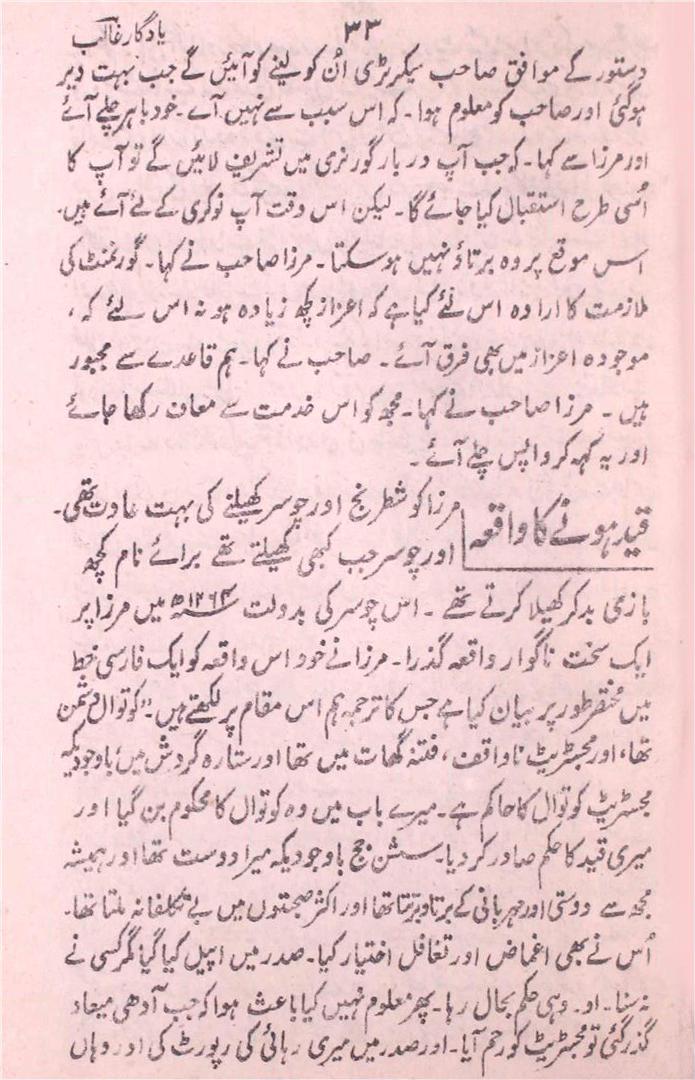 یادگار غالب
۳۳
دستور کے موافق صاحب سیکرٹری اُن کو لینے کو آئیں گے جب بہت دیر
ہوگئی اور صاحب کو معلوم ہوا۔ کہ اس سبب سے نہیں آے۔ خود باہر چلے آئے
اور مرزا سے کہا۔ کہ جب آپ دربار گورنری میں تشریف لائیں گے تو آپ کا
اُسی طرح استقبال کیا جائے گا۔ لیکن اس وقت آپ نوکری کے لئے آئے ہیں۔
اس موقع پر وہ برتاؤ نہیں ہوسکتا۔ مرزا صاحب نے کہا۔ گورنمنٹ کی
ملازمت کا ارادہ اس لئے کیا ہے کہ اعزاز کچھ زیادہ ہو نہ اس لئے کہ،
موجودہ اعزاز میں بھی فرق آئے۔ صاحب نے کہا۔ ہم قاعدے سے مجبور
ہیں۔ مرزا صاحب نے کہا۔ مجھ کو اس خدمت سے معاف رکھا جائے
اور یہ کہہ کر واپس چلے آئے۔
قید ہونے کا واقعہ
مرزا کو شطرنج اور چوسر کھیلنے کی بہت عادت تھی۔
اور چوسر جب کبھی کھیلتے تھے برائے نام کچھ
بازی بدکر کھیلا کرتے تھے۔ اس چوسر کی بدولت ۱۲۶۴ھ میں مرزا پر
ایک سخت ناگوار واقعہ گذرا۔ مرزا نے خود اس واقعہ کو ایک فارسی خط
میں مختصر طور پر بیان کیا ہے جس کا ترجمہ ہم اس مقام پر لکھتے ہیں۔ "کوتوال دشمن
تھا، اور مجسٹریٹ ناواقف، فتنہ گھات میں تھا اور ستارہ گردش میں، باوجودیکہ
مجسٹریٹ کوتوال کا حاکم ہے۔ میرے باب میں وہ کوتوال کا محکوم بن گیا اور
میری قید کا حکم صادر کر دیا۔ سشن جج باوجودیکہ میرا دوست تھا اور ہمیشہ
مجھ سے دوستی اور مہربانی کے برتاو برتتا تھا اور اکثر صحبتوں میں بے تکلفانہ ملتا تھا۔
اُس نے بھی اغماض اور تغافل اختیار کیا۔ صدر میں اپیل کیا گیا مگر کسی نے
نہ سنا۔ او۔ وہی حکم بحال رہا۔ پھر معلوم نہیں کیا باعث ہوا کہ جب آدھی میعاد
گذر گئی تو مجسٹریٹ کو رحم آیا۔ اور صدر میں میری رہائی کی رپورٹ کی اور وہاں